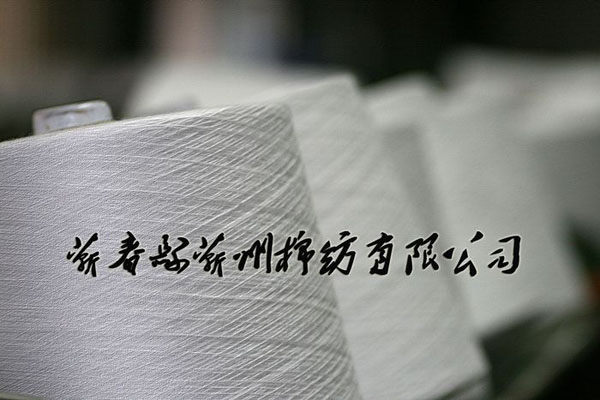 蕲春县蕲州棉纺有限公司